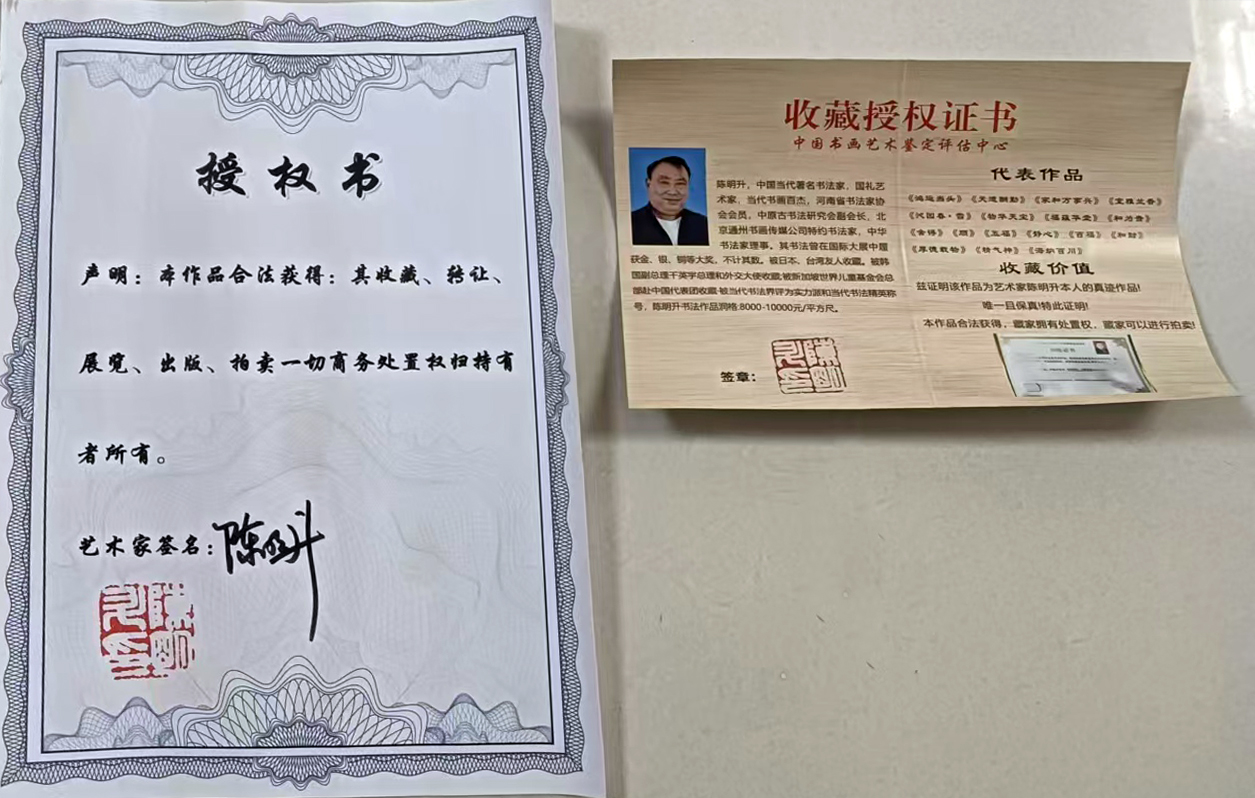 授权书
声明：本作品合法获得：其收藏、转让、
展览、出版、拍卖一切商务处置权归持有
者所有。
艺术家签名：陈明升
收藏授权证书
中国书画艺术鉴定评估中心
陈明升，中国当代著名书法家，国礼艺
术家，当代书画百杰，河南省书法家协
会会员，中原古书法研究会副会长，北
京通州书画传媒公司特约书法家，中华
书法家理事。其书法曾在国际大展中屡
获金、银、铜等大奖，不计其数。被日本、台湾友人收藏。被韩
国副总理千英宇总理和外交大使收藏;被新加坡世界儿童基金会总
部赴中国代表团收藏·被当代书法界评为实力派和当代书法精英称
号，陈明升书法作品润格:8000-10000元/平方尺。
签章：
代表作品
《鸿运当头》《天道酬勤》《家和万事兴》《室雅兰香》
《沁园春·雪》《物华天宝》《福蕴华堂》《和为贵》
《舍得》《顺》《五福》《静心》《百福》《和财》
《厚德载物》《精气神》《海纳百川》
收藏价值
兹证明该作品为艺术家陈明升本人的真迹作品!
唯一且保真!特此证明!
本作品合法获得，藏家拥有处置权，藏家可以进行拍卖!